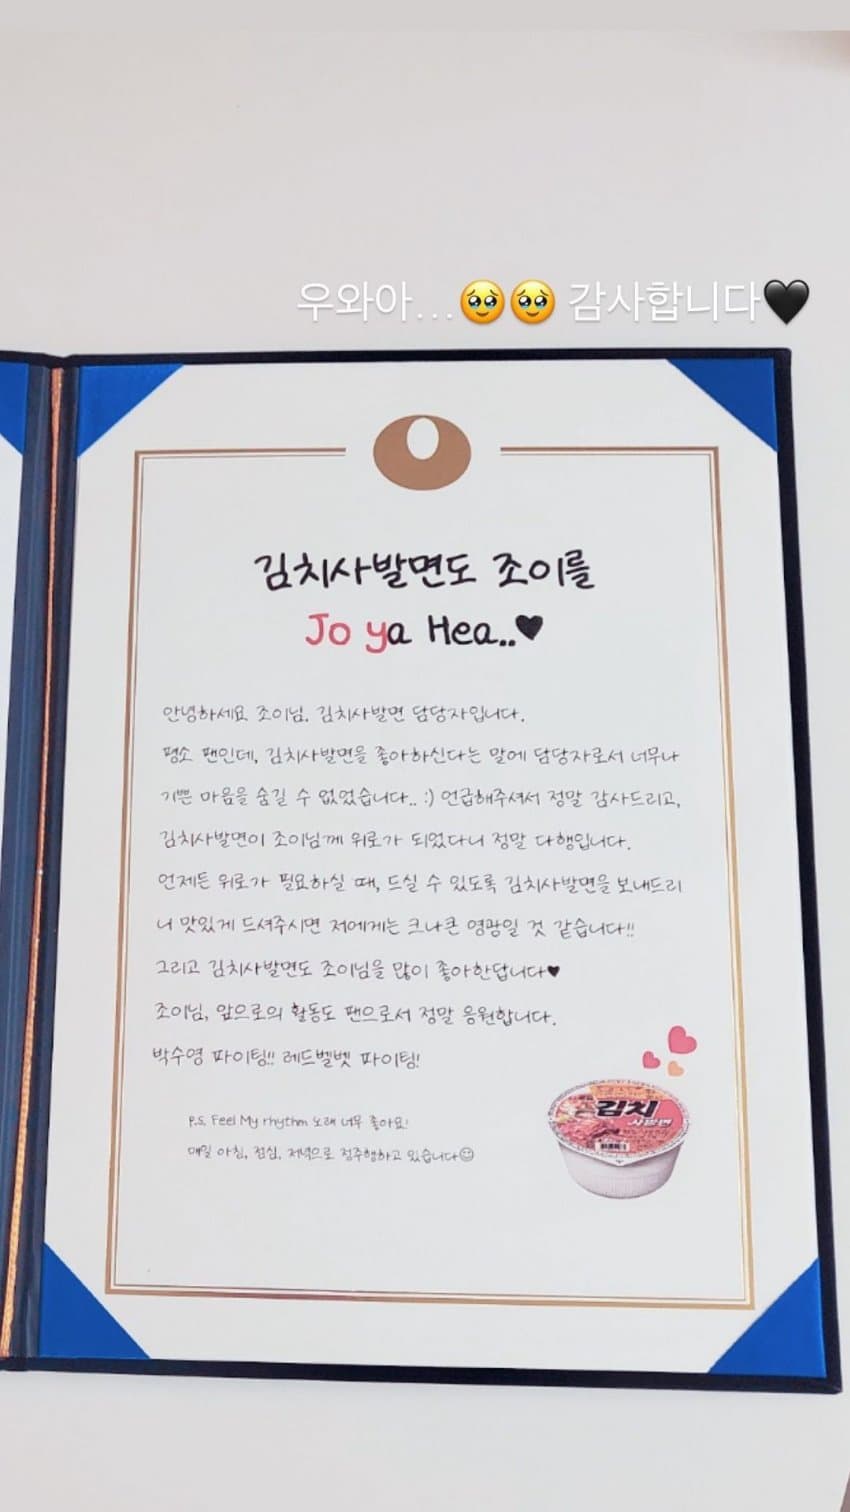 우와아...🥹🥹 감사합니다🖤
김치사발면도 조이를
Jo ya Hea..♥
안녕하세요 조이님, 김치사발면 담당자입니다.
평소 팬인데, 김치사발면을 좋아하신다는 말에 담당자로서 너무나
기쁜 마음을 숨길 수 없었습니다.. :) 언급해주셔서 정말 감사드리고,
김치사발면이 조이님께 위로가 되었다니 정말 다행입니다.
언제든 위로가 필요하실 때, 드실 수 있도록 김치사발면을 보내드리
니 맛있게 드셔주시면 저에게는 크나큰 영광일 것 같습니다!!
그리고 김치사발면도 조이님을 많이 좋아한답니다♥
조이님, 앞으로의 활동도 팬으로서 정말 응원합니다.
박수영 파이팅!! 레드벨벳 파이팅!
P.S. Feel My rhythm 노래 너무 좋아요!
매일 아침, 점심, 저녁으로 정주행하고 있습니다☺
김치
사발면